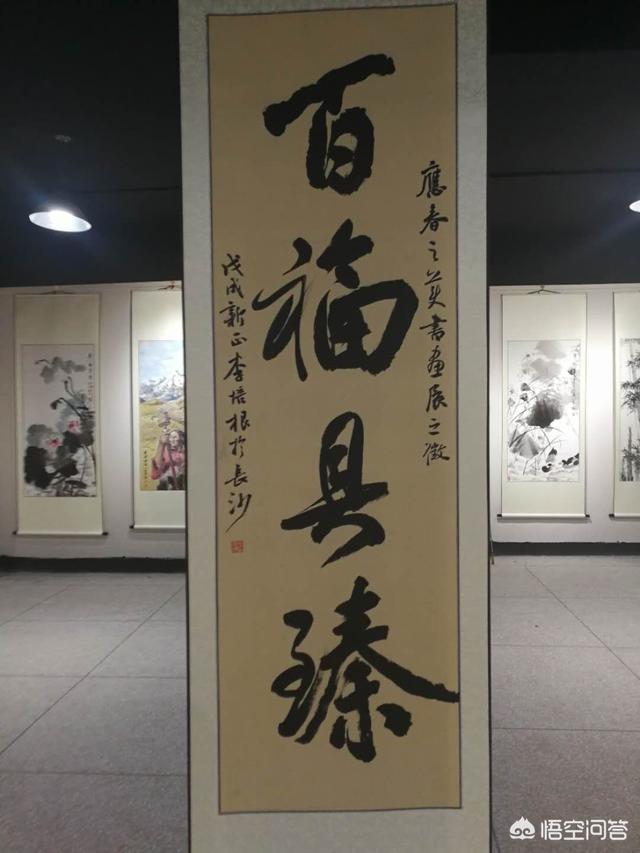 應春之美書畫展之徵
百福具臻
戊戌新正李培根於長沙
悟空问答